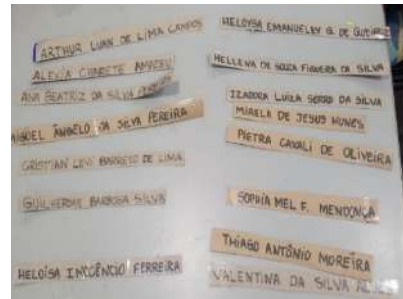 ARTHUR LUAN DE LIMA CAMPOS
ALEXIA CHARETE AMADEU
ANA BEATRIZ DA SILVA
MIGUEL ÂNGELO DA SILVA PEREIRA
CRISTIAN LEVI BARRETO DE LIMA
GUILHERME BARBOSA SILVA
HELOÍSA INOCÊNCIO FERREIRA
HELOYSA EMANUELLY G. DE
HELLENA DE SOUZA FIGUEIRA DA SILVA
IZADORA LUIZA SERRO DA SILVA
MIRELA DE JESUS NUNES
PIETRA CAVALI DE OLIVEIRA
SOPHIA MEL F. MENDONÇA
THIAGO ANTÔNIO MOREIRA
VALENTINA DA SILVA